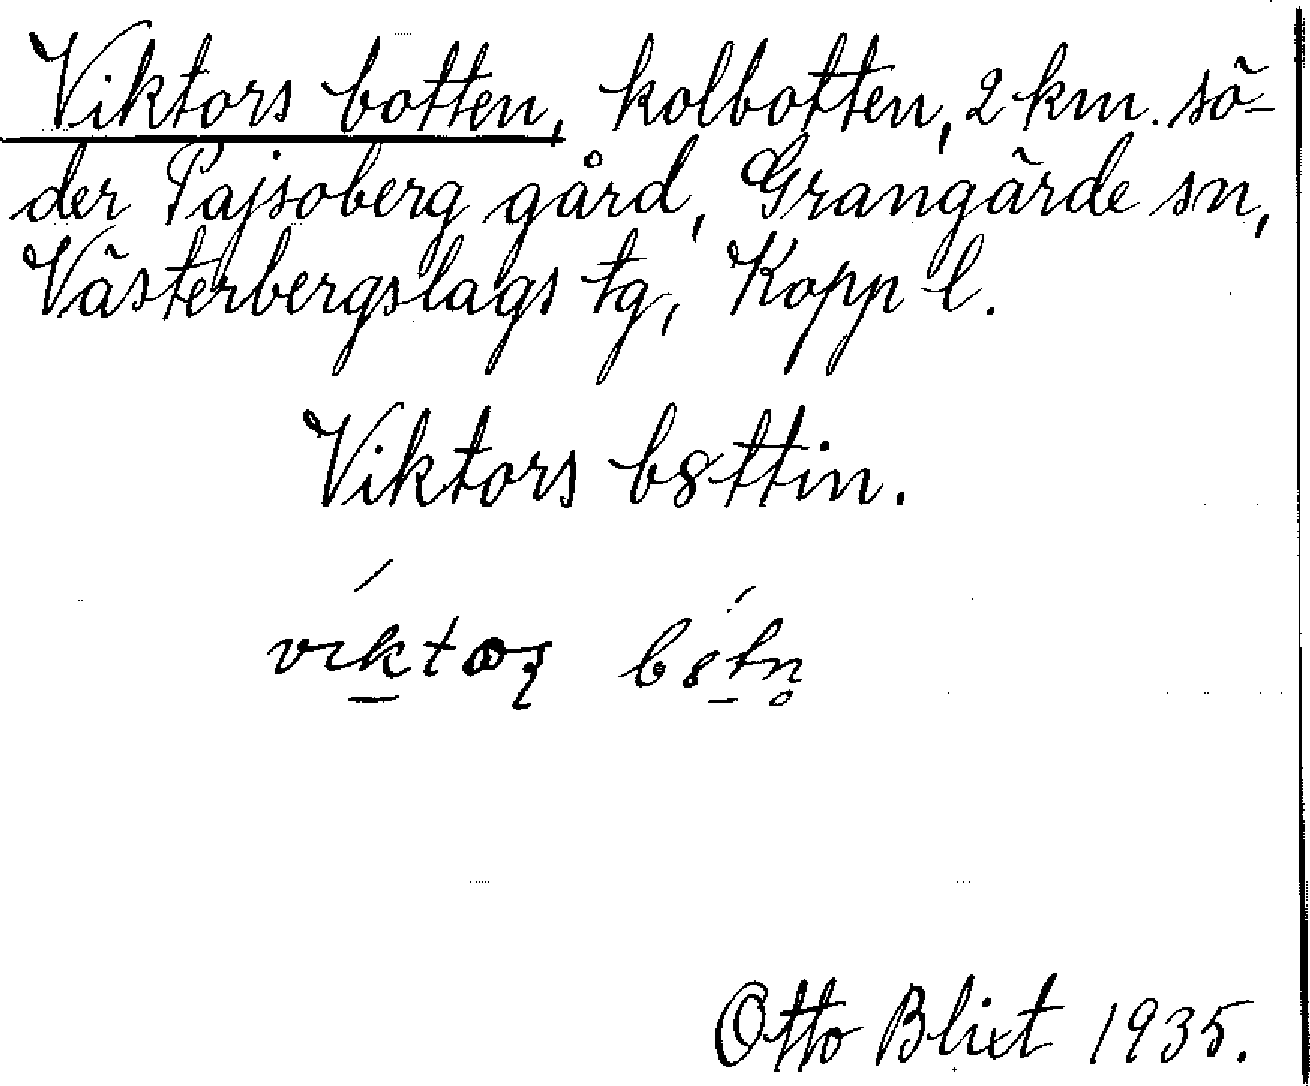 Viktors botten, kolbotten, 2 km. sö-
der Pajsoberg gård, Grangärde sn,
Västerbergslags tg, Kopp l.
Viktors b8ttin.
Otto Blixt 1935.